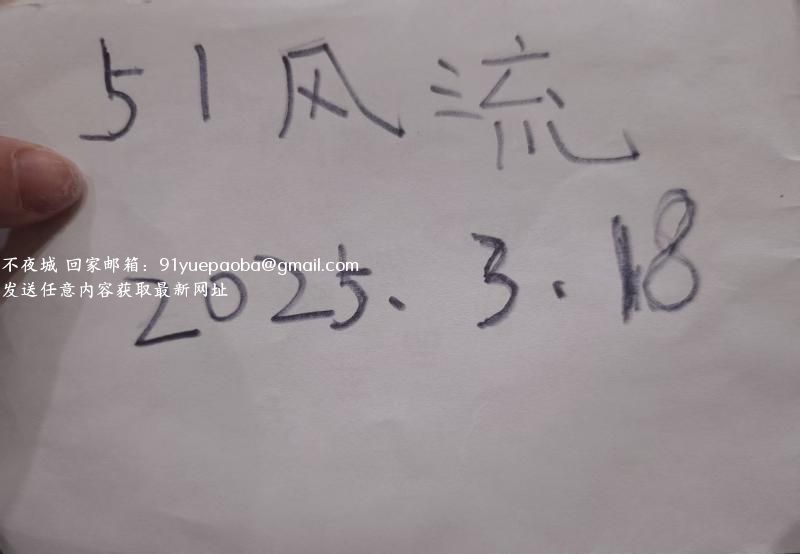 51风流
不夜城 回家邮箱：91yuepaoba@gmail.com
发送任意内容获取最新网址
2025、3.18